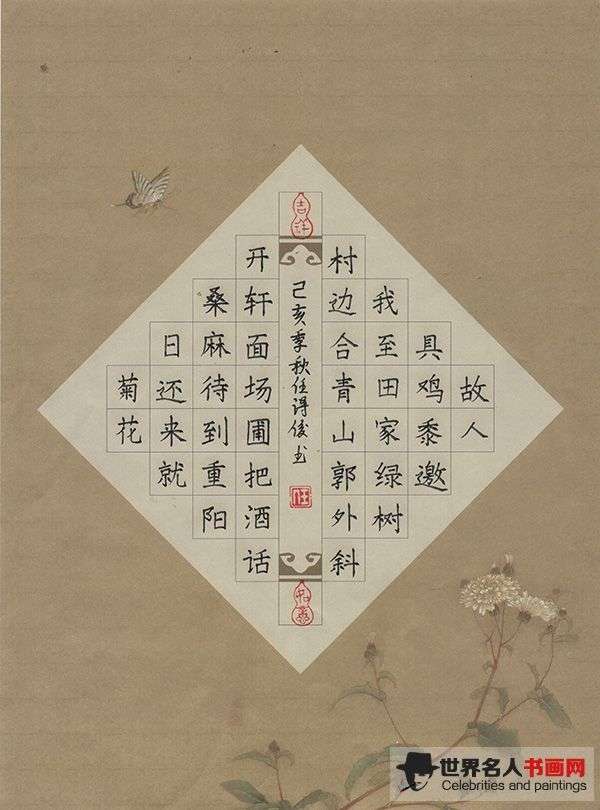 故人
具鸡黍邀
我至田家绿树
村边合青山郭外斜
吉祥
己亥季秋任得俊书
任
开轩面场圃把酒话
桑麻待到重阳
日还来就
菊花
世界名人书画网
Celebrities and paintings